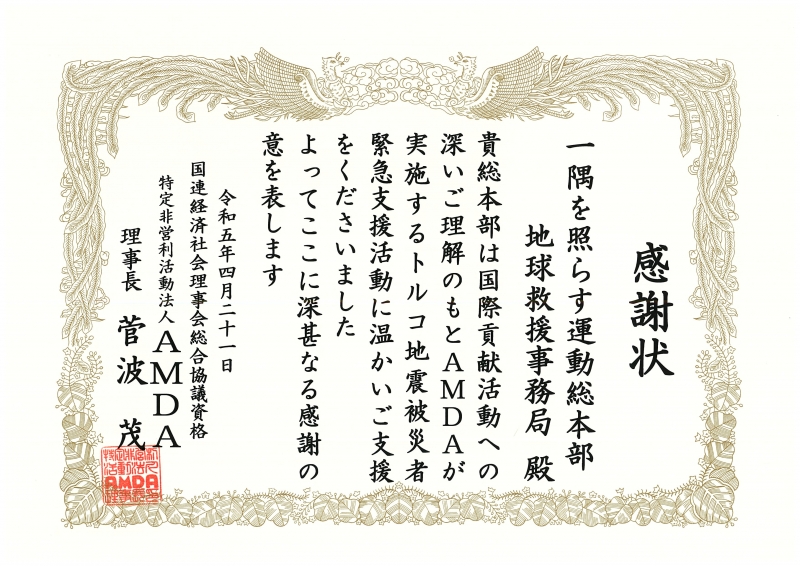 感謝状
一隅を照らす運動総本部
地球救援事務局 殿
貴総本部は国際貢献活動への
深いご理解のもとAMDAが
実施するトルコ地震被災者
緊急支援活動に温かいご支援
をくださいました
よってここに深甚なる感謝の
意を表します
令和五年四月二十一日
国連経済社会理事会総合協議資格
特定非営利活動法人AMDA
理事長 菅波 茂
AMDA